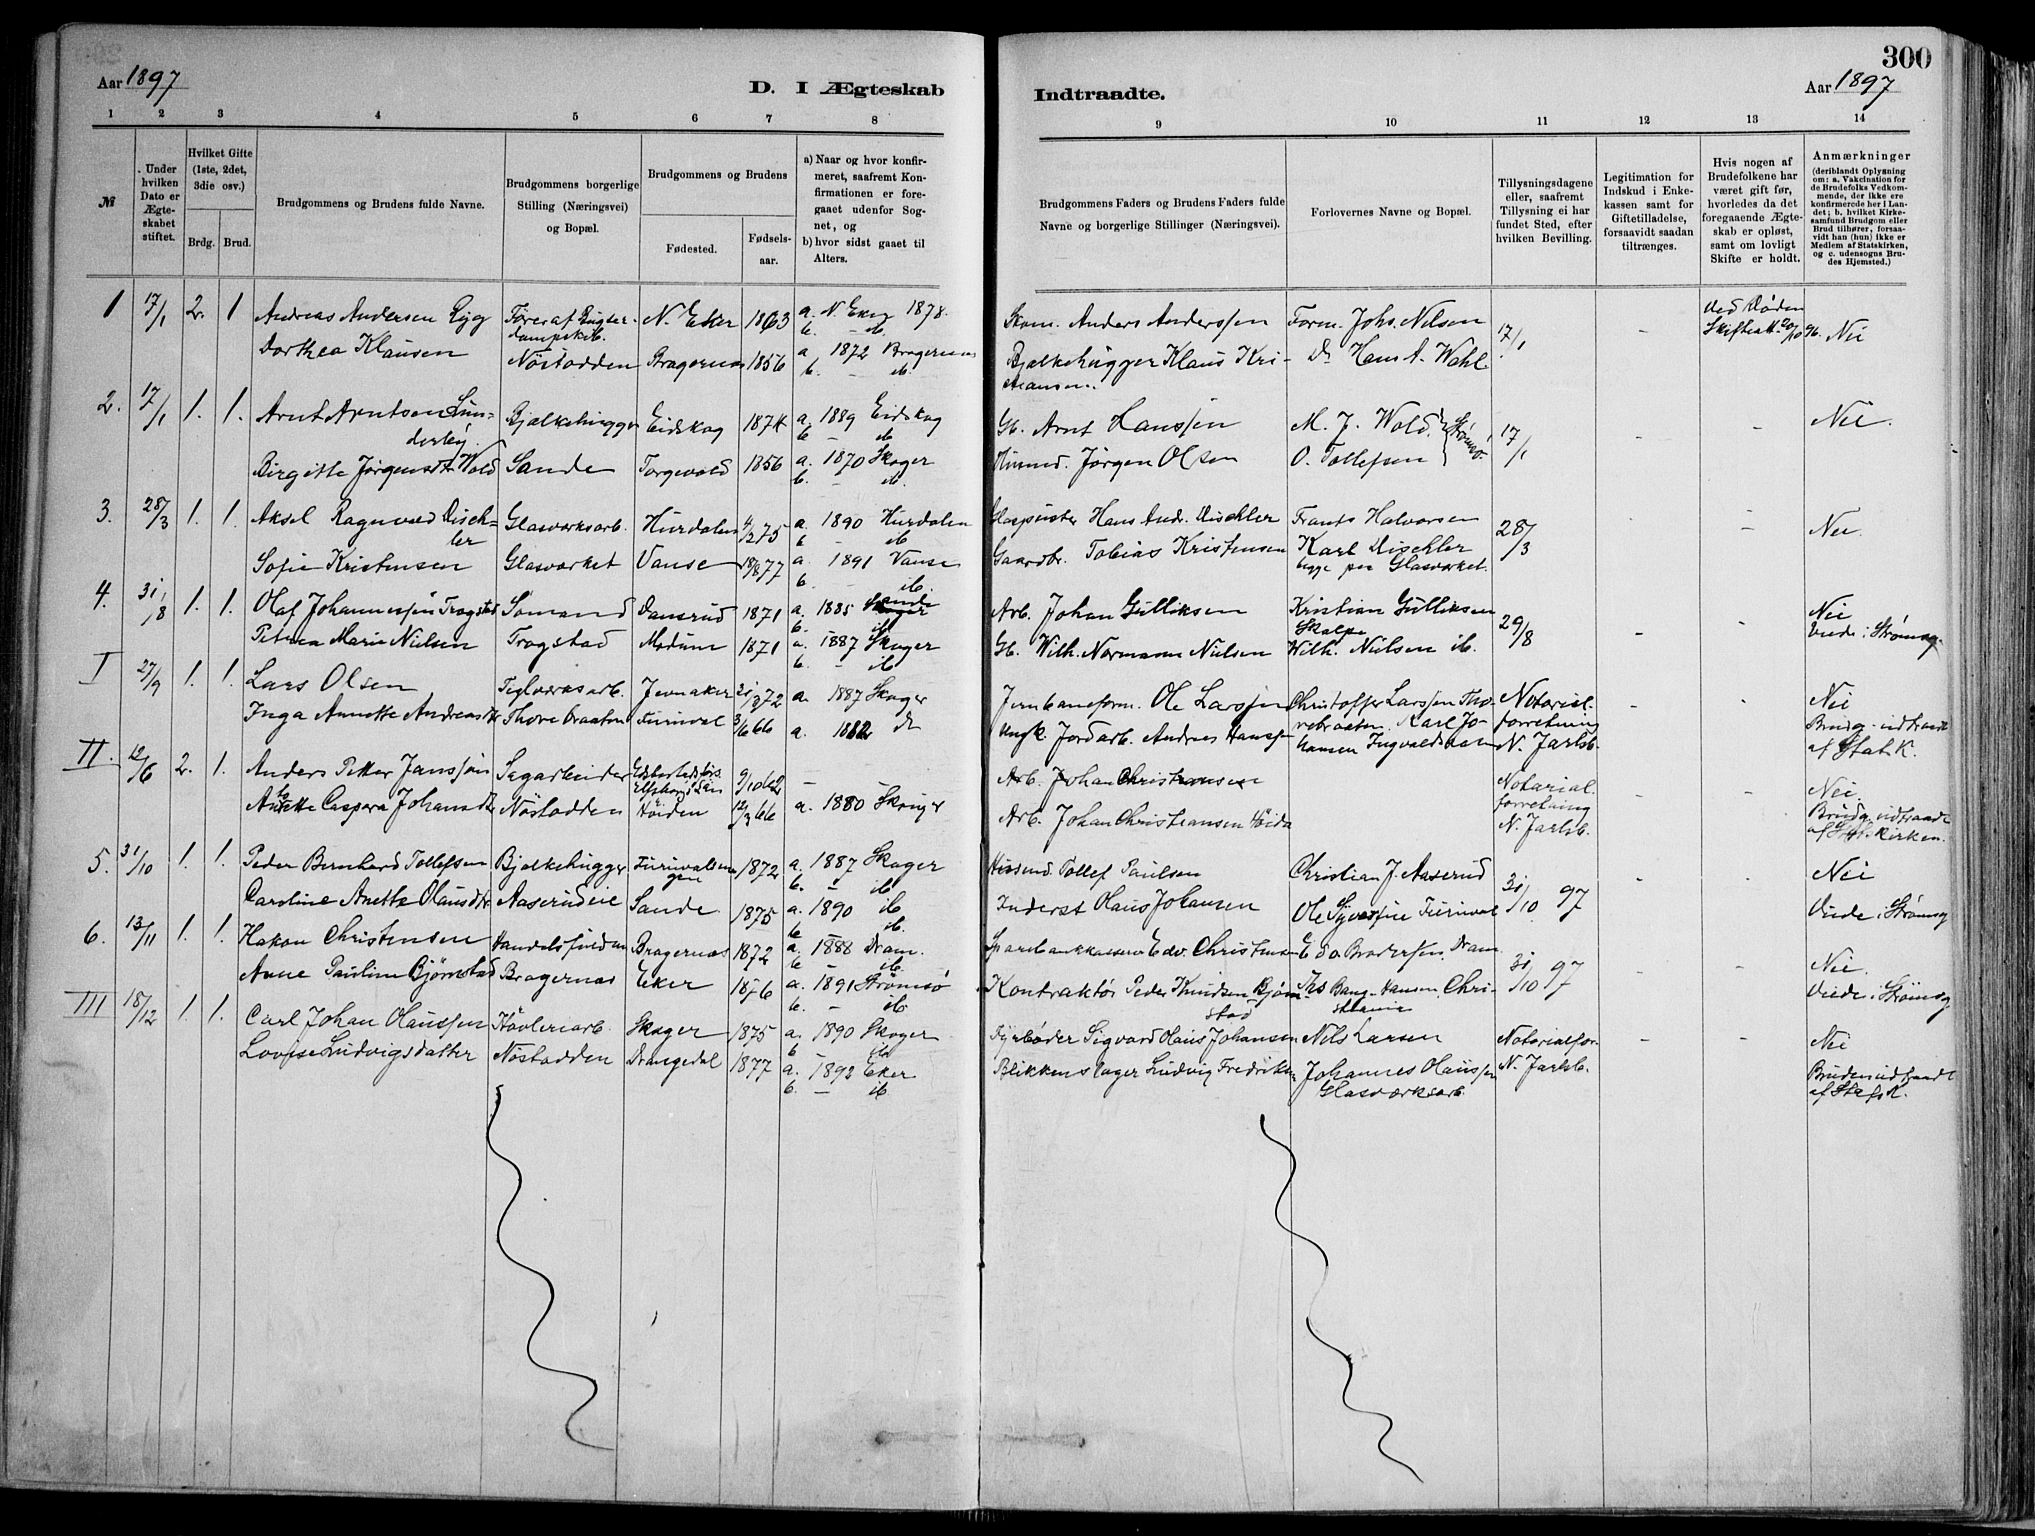 300
Aar 1897
D. I Ægteskab
Indtraadte.
Aar 1897
1 2 3 4 5 6 7 8
9 10 11 12 13 14
№
Under hvilken Dato er Ægteskabet stiftet.
Hvilket Gifte (1ste, 2det, 3die osv.)
Brdg. Brud.
Brudgommens og Brudens fulde Navne.
Brudgommens borgerlige Stilling (Næringsvei) og Bopæl.
Brudgommens og Brudens
Fødested. Fødselsaar.
a) Naar og hvor konfirmeret, saafremt Konfirmationen er foregaaet udenfor Sognet, og
b) hvor sidst gaaet til Alters.
Brudgommens Faders og Brudens Faders fulde Navne og borgerlige Stillinger (Næringsvei).
Forlovernes Navne og Bopæl.
Tillysningsdagene eller, saafremt Tillysning ei har fundet Sted, efter hvilken Bevilling.
Legitimation for Indskud i Enkekassen samt for Giftetilladelse, forsaavidt saadan tiltrænges.
Hvis nogen af Brudefolkene har været gift før, hvorledes da det foregaaende Ægteskab er opløst, samt om lovligt Skifte er holdt.
Anmærkninger (deriblandt Oplysning om: a. Vakcination for de Brudefolks Vedkommende, der ikke ere konfirmerede her i Landet; b. hvilket Kirkesamfund Brudgom eller Brud tilhører, forsaavidt han (hun) ikke er Medlem af Statskirken, og c. udensogns Brudes Hjemsted.)
1 17/1 2. 1 Andreas Andersen N. Eker 1863 a. N. Eker 1878. b. – ib. Anders Anderssen Form. Johs. Nilsen 17/1 – Ved Døden Nei
Dorthea Klausen Nöstodden Bragernæs 1856 a 1872 Bragernæs b. – ib. Bjælkehugger Klaus Kristiansen. Hans A. Wahl
2. 17/1 1. 1. Arnt Arntsen Linderby Bjælkehugger Eidskog 1874 a. 1889 Eidskog b – ib Gb. Arnt Hanssen M. J. Wold Strømsö. 17/1 – – Nei.
Birgitte Jørgensdt. Wold Sande 1856 a. 1870 Skoger b. – ib. Husmd. Jörgen Olsen O. Tollefsen
3. 28/3 1. 1. Aksel Ragnvald Dischler Glasværksarb. Hurdalen 4/2 75 a. 1890 Hurdalen b – ib Glaspuster Hans Andr. Dischler Frants Halvorsen 28/3 – – Nei
Sofie Kristensen Glasværket Vanse 18/8 77 a. 1891 Vanse b. – ib. Gaardbr. Tobias Kristensen Karl Dischler begge paa Glasværket.
4. 31/8 1. 1. Olaf Johannessen Trogstad Sømand Dansrud 1871 a. 1885 Sande b. – ib Arb. Johan Gulliksen Kristian Gulliksen Skalpe 29/8 – – Nei
Petrea Marie Nielsen Trogstad Modum 1871 a. 1887 Skoger b – ib Gb. Wilh. Normann Nielsen Wilh. Nielsen ib. Viede i Strømsø.
I 27/9 1. 1. Lars Olsen Teglværksarb. Jevnaker 72 a. 1887 Skoger Jernbaneform. Ole Larssen Christoffer Larssen Thorebraaten. Notarialforretning N. Jarlsb. – – Nei
Inga Annette Andreasdtr Thorebraaten Furuval 3/6 66 a. 1882 dt Ungk. Jordarb. Andreas Hanssen Karl Johansen Ingvaldsaasen Brudg. udtraadt af Stats K.
II. 12/6 2. 1. Anders Petter Janssön Sagarbeider 9/10 62 – Arb. Johan Christiansen Notarial. forretning N. Jarlsb. – – Nei.
Anette Caspara Johansdtr Nöstodden Höiden 12/3 66 a. 1880 Skoger Arb. Johan Christiansen Höida Brudg. udtraadt af Statskirken.
5. 31/10 1. 1. Peder Bernhard Tollefsen Bjælkehugger 1872 a. 1887 Skoger b. – ib Husmd. Tollef Paulsen Christian J. Aaserud 31/10 97 – – Nei
Caroline Anette Olausdtr Aaserudeie Sande 1875 a. 1890 ib b – ib. Inderst Olaus Johansen Ole Furuval Viede i Strømsø
6. 13/11 1. 1. Hakon Christensen Handelsfuldm. Bragernæs 1872 a. 1888 Dram. b – ib. Sparebankkasserer Edv. Christensen Edv. Brodersen Dram. 31/10 97 Nei.
Anne Pauline Bjørnstad Bragernæs Eker 1876 a. 1891 Strömsö b. – ib Kontraktör Peder Knudsen Bjørnstad Ths Bang-Hansen. Christiania Viede i Strömsø
III 18/12 1. 1. Carl Johan Olaussen Høvleriarb. Skoger 1875 a. 1890 Skoger b – ib Fyrbøder Sigvard Olaus Johansen Nils Larsen Notarialfor. N. Jarlsb. – – Nei
Lovise Ludvigsdatter Nöstodden Drangedal 1877 a. 1892 Eker b. – ib Blikkenslager Ludvig Fredriksen Johannes Olaussen Glasværksarb. Bruden udtraadt af Stats K.